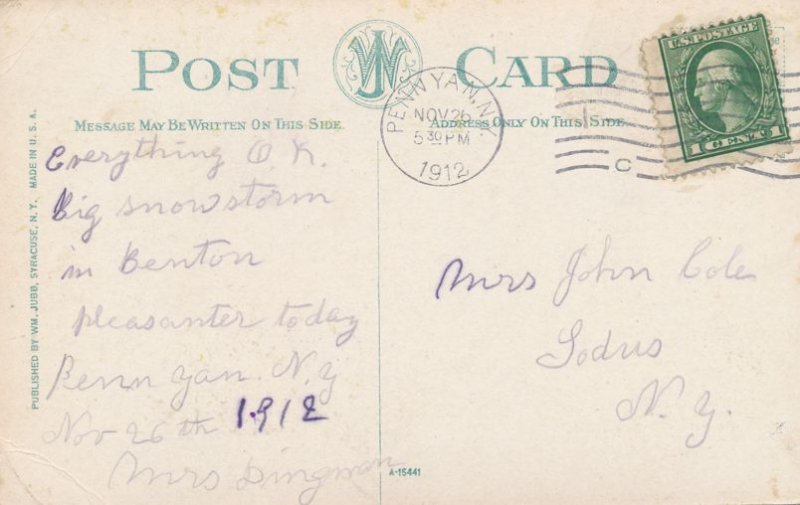 POST CARD
MESSAGE MAY BE WRITTEN ON THIS SIDE.
ADDRESS ONLY ON THIS SIDE.
PENN YAN, N.
NOV 26
5 30 PM
1912
C
U.S. POSTAGE
1 CENT 1
PUBLISHED BY WM. JUBB, SYRACUSE, N. Y. MADE IN U. S. A.
Everything O.K.
Big snowstorm
in Benton
pleasanter today
Penn Yan. N.Y
Nov 26th 1912
Mrs Dingman
Mrs John Cole
Sodus
N.Y.
A-15441